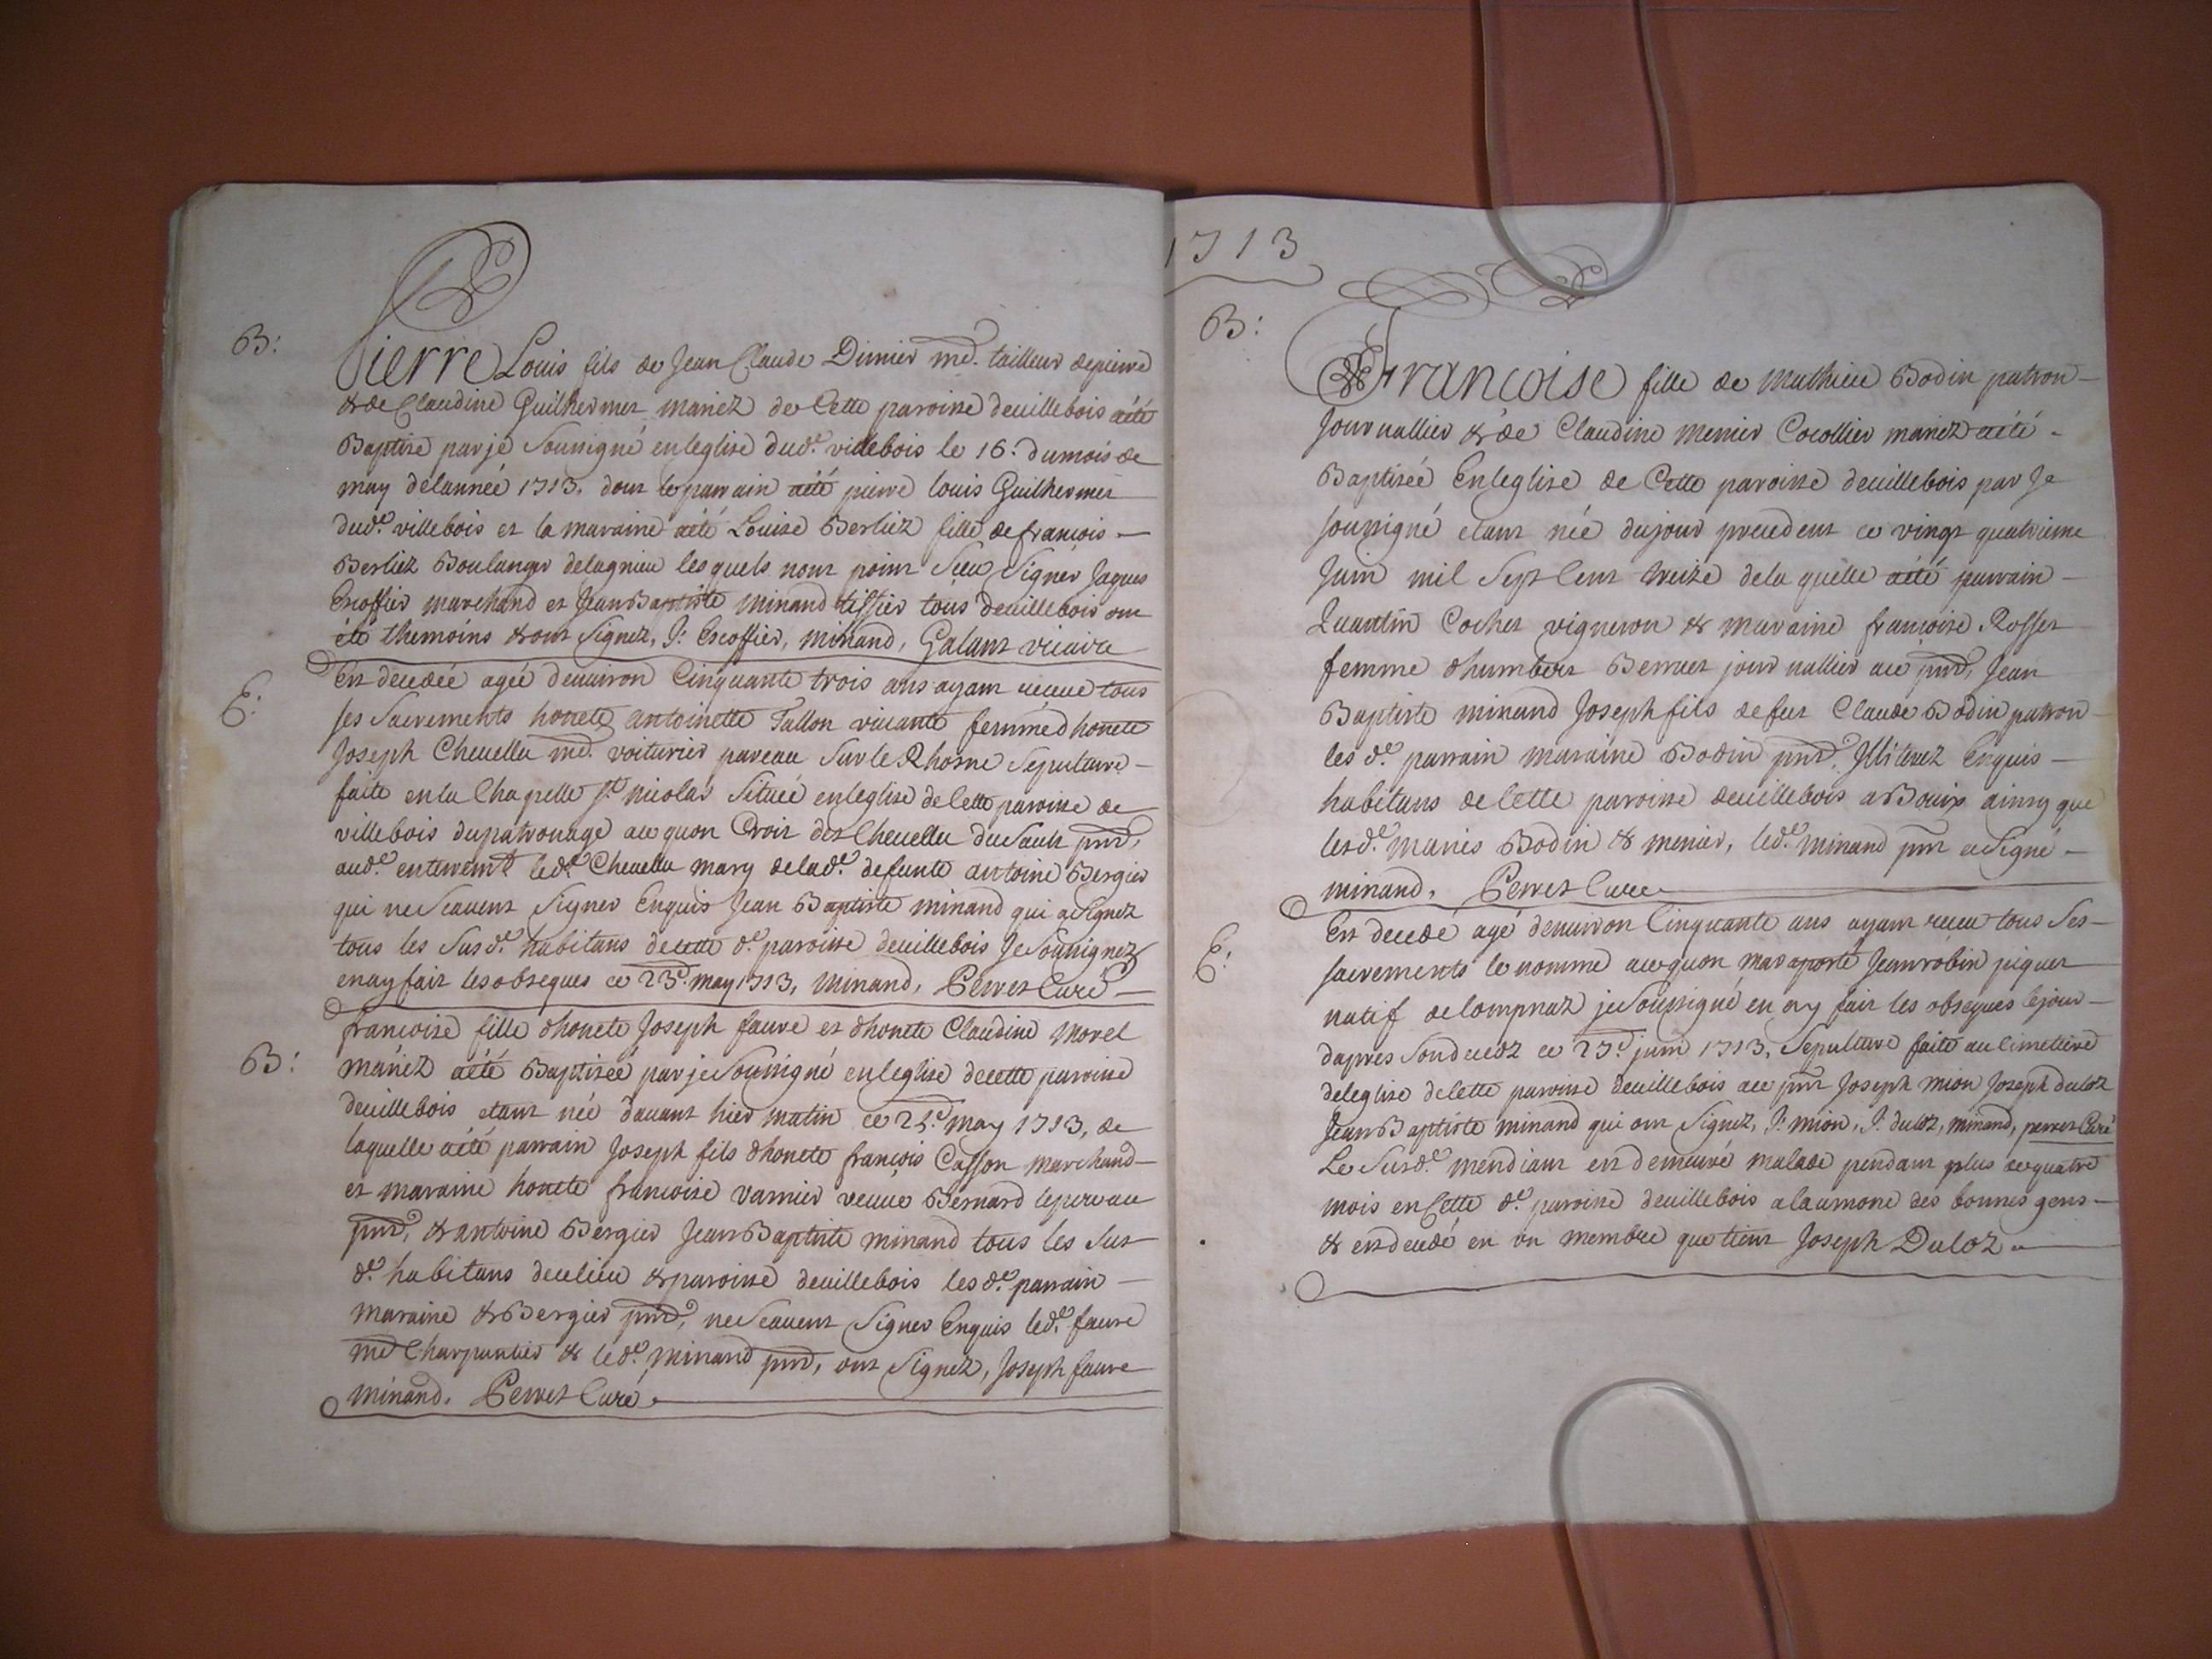 B:
Pierre Louis fils de Jean Claude Dimier md. tailleur depierre
& de Claudine Guilhermet mariez de Cette paroisse deuillebois aété
Baptise par je Soussigné enleglise dud.e villebois le 16. dumois de
may delannée 1713. dont leparrain aété pierre louis Guilhermet
dud.e villebois et la maraine aété Louise Berliez fille de francois
Berliez Boulanger delagnieu lesquels nont point Sceu Signer Jaques
Escoffier marchand et Jean Baptiste minand tissier tous deuillebois ont
été themoins & ont Signez, J: Escoffier, minand, Galant vicaire
E:
Est decedée agée denuiron Cinquante trois ans ayant receue tous
ses Sacrements honete antoinette Tallon viuante femme dhonete
Joseph Cheuellu md. voiturier pareau Sur le Rhosne Sepulture
faite en la Chapelle St nicolas Située enleglise de Cette paroisse de
villebois dupatronage ace quon Croit des Cheuellu du Sault pnt,
aud.e enterremt led.e Cheuellu mary delad.e defunte antoine Bergier
qui ne Scauent Signer Enquis Jean Baptiste minand qui a Signez
tous les Susd.e habitans decette d.e paroisse deuillebois Je Soussignez
enay fait les obseques ce 23.e may 1713, minand, Perret Curé
B:
francoise fille dhonete Joseph faure et dhonete Claudine Morel
mariez aété Baptisée par je Soussigné enleglise decette paroisse
deuillebois etant née dauant hier matin ce 25.e may 1713, de
laquelle aété parrain Joseph fils dhonete françois Casson marchand
et maraine honete francoise varnier veuue Bernard
pnt, & antoine Bergier Jean Baptiste minand tous les Sus
d.e habitans decelieu & paroisse deuillebois les d.e parrain
maraine & Bergier pnt, ne Scauent Signer Enquis led.e faure
md Charpentier & led.e minand pnt, ont Signez, Joseph faure
minand. Perret Curé
1713
B:
Francoise fille de Mathieu Bodin patron
Journallier & de Claudine menier Cocollier mariez aété
Baptisée Enleglise de Cette paroisse deuillebois par Je
soussigné etant née dujour precedent ce vingt quatrieme
Juin mil Sept Cent treize de la quelle aété parrain
Quantin Cochet vigneron & maraine francoise Rosset
femme dhumbert Berruet jour nallier ace pnt, Jean
Baptiste minand Joseph fils de feu Claude Bodin patron
les d.e parrain maraine Bodin pnt, Illiterez Enquis
habitans de Cette paroisse deuillebois aBouix ainsy que
lesd.e mariés Bodin & menier, led.e minand pnt a Signé
minand, Perret Cure
E:
Est decedé agé denuiron Cinquante ans ayant receu tous Ses
sacrements le nommé ace quon ma raporté Jean robin piquet
natif delompnaz je Soussigné en ay fait les obseques lejour
dapres Son decez ce 25.e juin 1713, Sepulture faite au Cimetiere
deleglise de Cette paroisse deuillebois ace pnt Joseph mion Joseph duloz
Jean Baptiste minand qui ont Signez, J: mion, J: duloz, minand, perret Curé
Le Susd.e mendiant est demeuré malade pendant plus de quatre
mois en Cette d.e paroisse deuillebois a la aumone des bonnes gens
& est decedé en un membre que tient Joseph Duloz